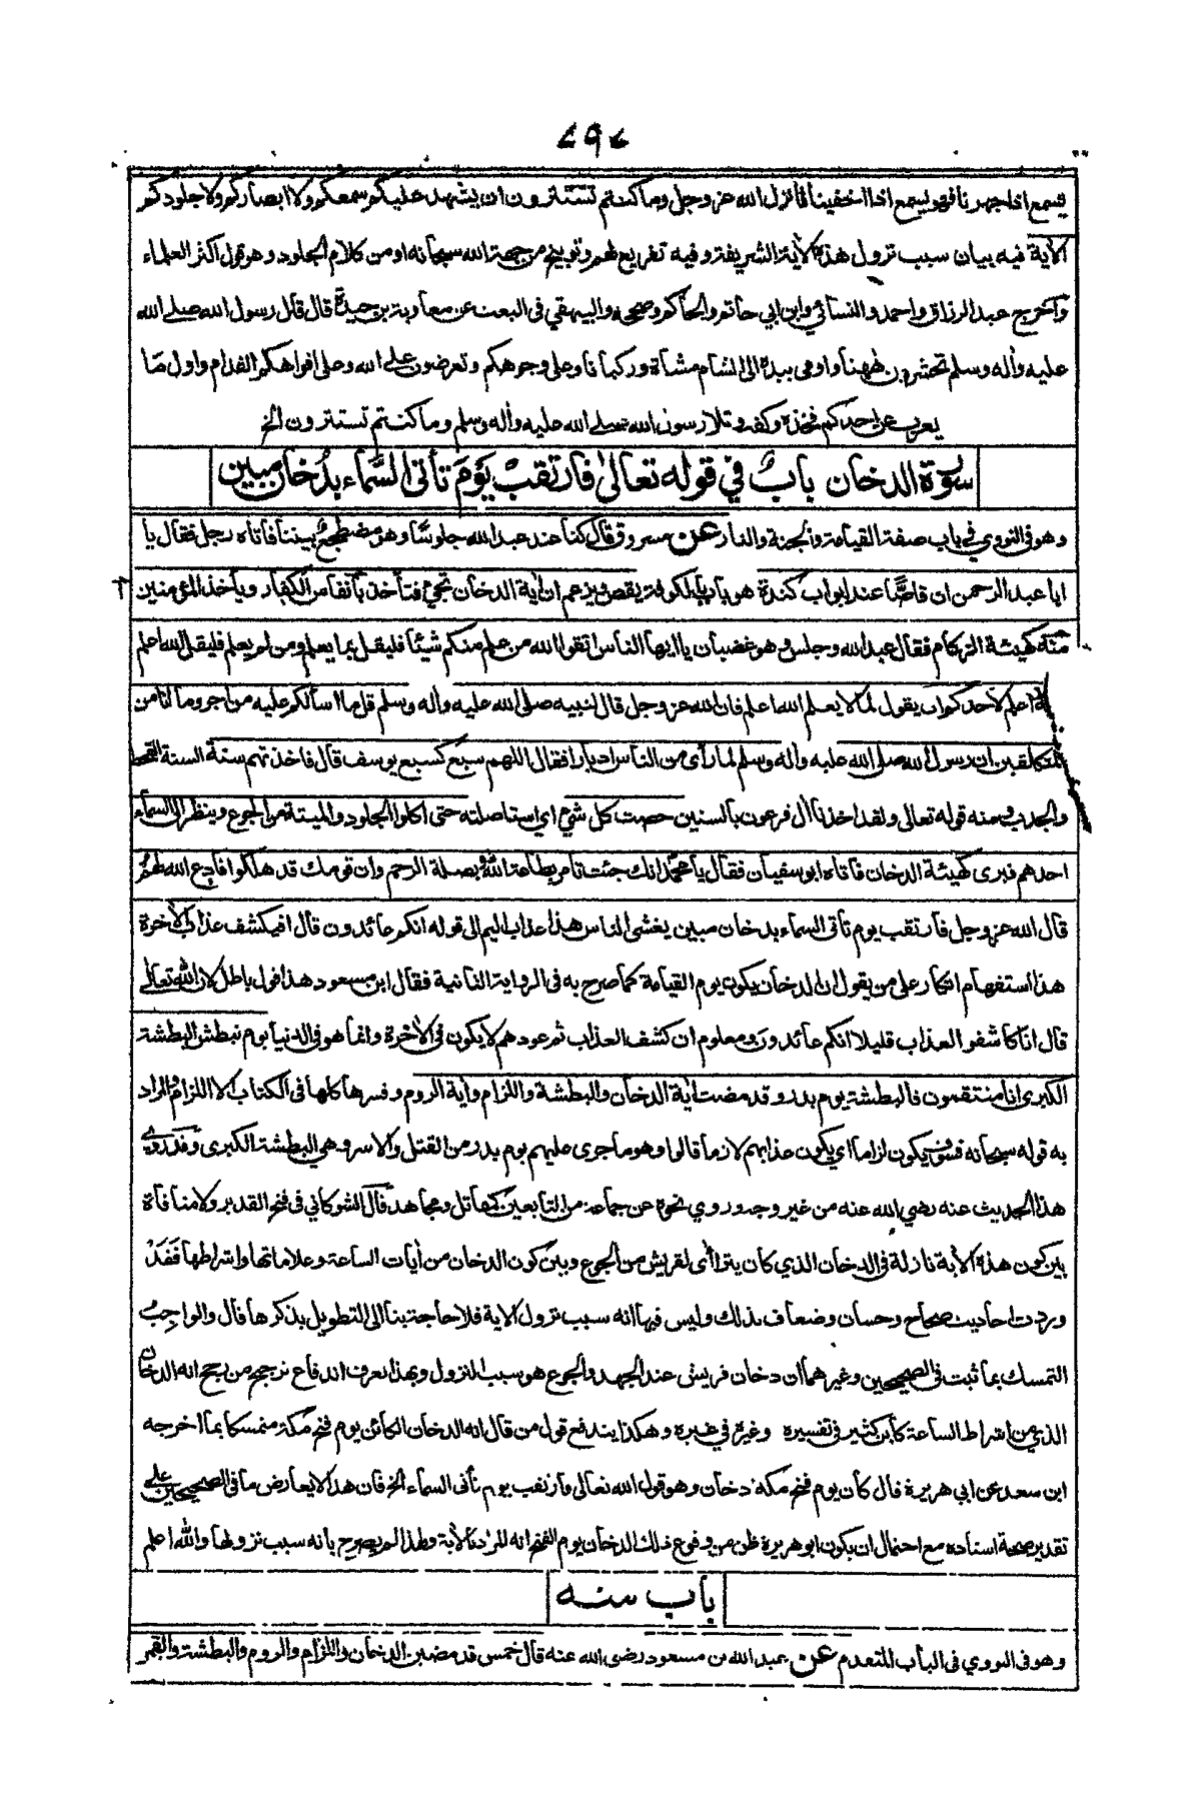 ٧٩٧
يسمع اذا جهرنا فهو يسمع اذا اخفينا فانزل الله عز وجل وما كنتم تستترون ان يشهد عليكم سمعكم ولا ابصاركم ولا جلودكم
الآية فيه بيان سبب نزول هذه الآية الشريفة وفيه تقريع لهم وتوبيخ من جهة الله سبحانه او من كلام الجلود وهو قول اكثر العلماء
واخرج عبد الرزاق واحمد والنسائي وابن ابي حاتم والحاكم وصححه والبيهقي في البعث عن معاوية بن حيدة قال قال رسول الله صلى الله
عليه واله وسلم تحشرون ههنا واومى بيده الى الشام مشاة وركبانا وعلى وجوهكم وتعرضون على الله وعلى افواهكم الفدام واول ما
يعرب عن احدكم فخذه وكفه وتلا رسول الله صلى الله عليه واله وسلم وما كنتم تستترون الخ
سورة الدخان باب في قوله تعالى فارتقب يوم تأتي السماء بدخان مبين
وهو في النووي في باب صفة القيامة والجنة والنار عن مسروق قال كنا عند عبد الله جلوسا وهو مضطجع بيننا فاتاه رجل فقال يا
ابا عبد الرحمن ان قاصا عند ابواب كندة هو باب بالكوفة يقص ويزعم ان آية الدخان تجيء فتأخذ بأنفاس الكفار ويأخذ المؤمنين
منه كهيئة الزكام فقال عبد الله وجلس وهو غضبان يا ايها الناس اتقوا الله من علم منكم شيئا فليقل بما يعلم ومن لم يعلم فليقل الله اعلم
فانه اعلم لاحدكم ان يقول لما لا يعلم الله اعلم فان الله عز وجل قال لنبيه صلى الله عليه واله وسلم قل ما اسألكم عليه من اجر وما انا من
المتكلفين ان رسول الله صلى الله عليه واله وسلم لما رأى من الناس ادبارا فقال اللهم سبع كسبع يوسف قال فاخذتهم سنة السنة القحط
والجدب ومنه قوله تعالى ولقد اخذنا آل فرعون بالسنين حصت كل شيء اي استاصلته حتى اكلوا الجلود والميتة من الجوع وينظر الى السماء
احدهم فيرى كهيئة الدخان فاتاه ابو سفيان فقال يا محمد انك جئت تامر بطاعة الله وبصلة الرحم وان قومك قد هلكوا فادع الله لهم
قال الله عز وجل فارتقب يوم تأتي السماء بدخان مبين يغشى الناس هذا عذاب اليم الى قوله انكم عائدون قال افيكشف عذاب الآخرة
هذا استفهام انكار على من يقول ان الدخان يكون يوم القيامة كما صرح به في الرواية الثانية فقال ابن مسعود هذا قول باطل لان الله تعالى
قال انا كاشفو العذاب قليلا انكم عائدون ومعلوم ان كشف العذاب ثم عودهم لا يكون في الآخرة وانما هو في الدنيا يوم نبطش البطشة
الكبرى انا منتقمون فالبطشة يوم بدر وقد مضت آية الدخان والبطشة واللزام وآية الروم وفسرها كلها في الكتاب الا اللزام والمراد
به قوله سبحانه فسوف يكون لزاما اي يكون عذابهم لازما قالوا وهو ما جرى عليهم يوم بدر من القتل والاسر وهي البطشة الكبرى وقد روي
هذا الحديث عنه رضي الله عنه من غير وجه وروي نحوه عن جماعة من التابعين كمقاتل ومجاهد قال الشوكاني في فتح القدير ولا منافاة
بين كون هذه الآية نازلة في الدخان الذي كان يتراأى لقريش من الجوع وبين كون الدخان من آيات الساعة وعلاماتها واشراطها فقد
وردت احاديث صحاح وحسان وضعاف بذلك وليس فيها انه سبب نزول الآية فلا حاجة بنا الى التطويل بذكرها قال والواجب
التمسك بما ثبت في الصحيحين وغيرهما ان دخان قريش عند الجهد والجوع هو سبب النزول وبهذا تعرف اندفاع ترجيح من رجح انه الدخان
الذي من اشراط الساعة كابن كثير في تفسيره وغيره في غيره وهكذا يندفع قول من قال انه الدخان الكائن يوم فتح مكة متمسكا بما اخرجه
ابن سعد عن ابي هريرة قال كان يوم فتح مكة دخان وهو قول الله تعالى فارتقب يوم تأتى السماء الخ فان هذا لا يعارض ما في الصحيحين على
تقدير صحة اسناده مع احتمال ان يكون ابو هريرة ظن من وقوع ذلك الدخان يوم الفتح انه المراد بالآية ولهذا لم يصرح بانه سبب نزولها والله اعلم
باب منه
وهو في النووي في الباب المتقدم عن عبد الله بن مسعود رضي الله عنه قال خمس قد مضين الدخان واللزام والروم والبطشة والقمر